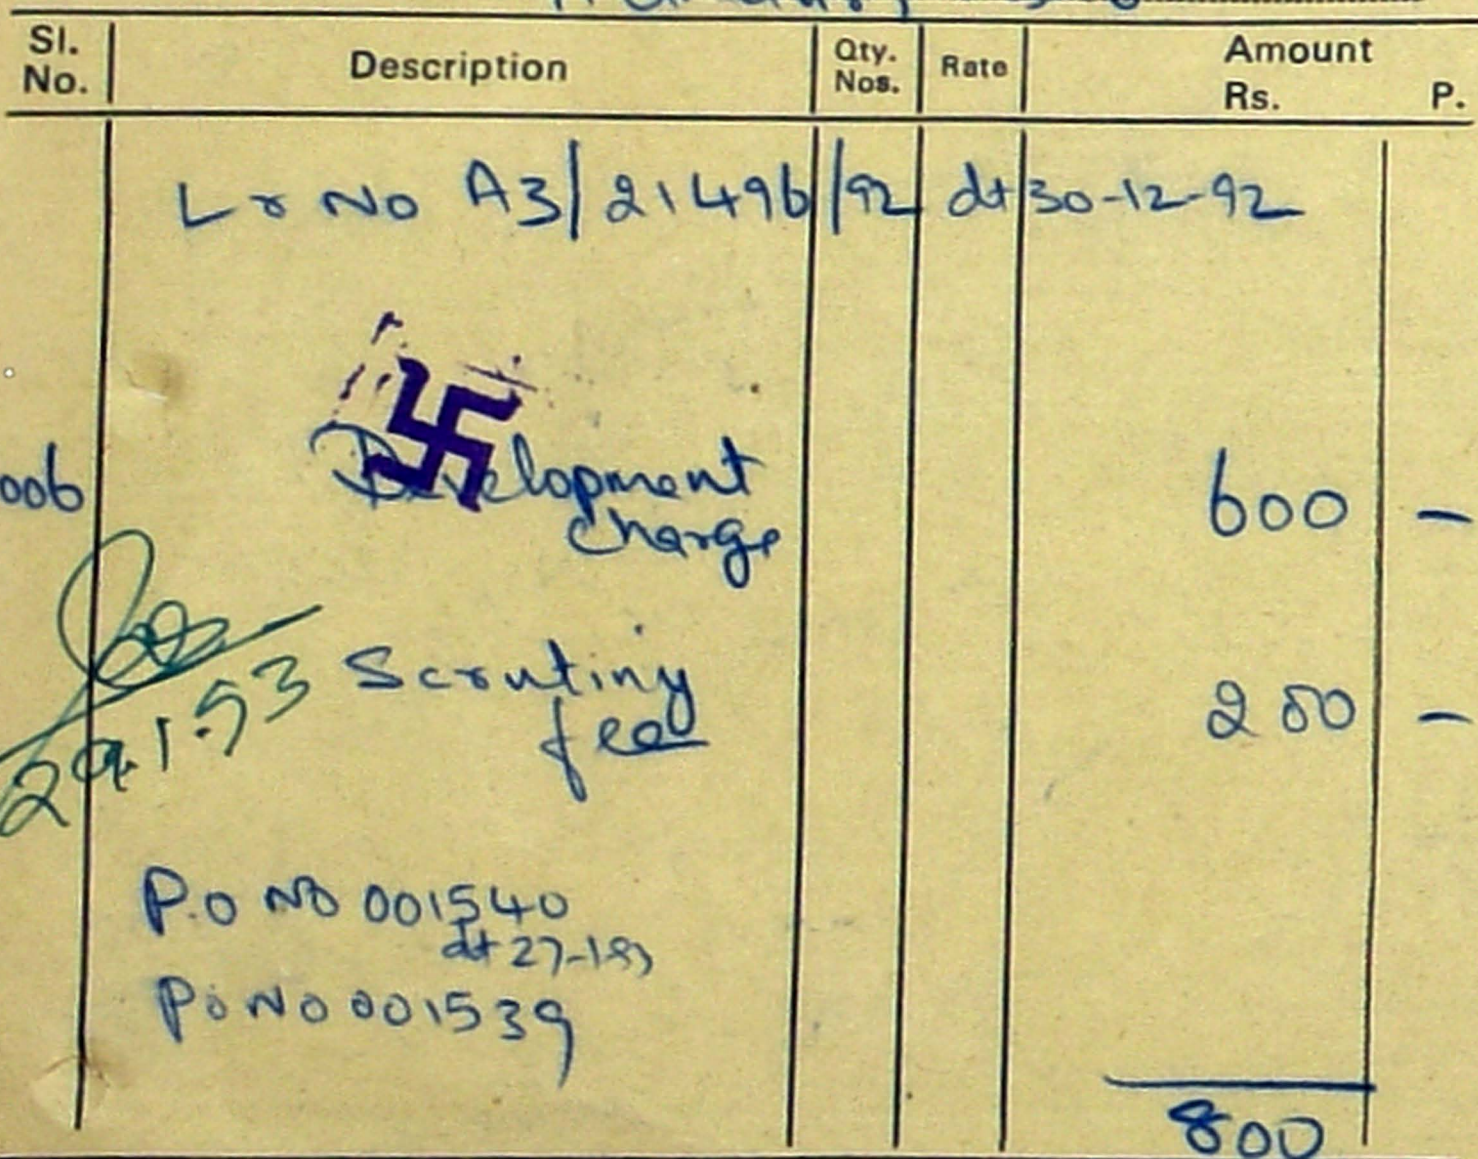 Sl. No. Description Qty. Nos. Rate Amount Rs. P.
Lr No A3/21496/92 dt 30-12-92
006 Development 600 -
charge
Scrutiny 200 -
fee
29.1.93
P.O NO 001540
dt 27-1-93
P.O NO 001539
800